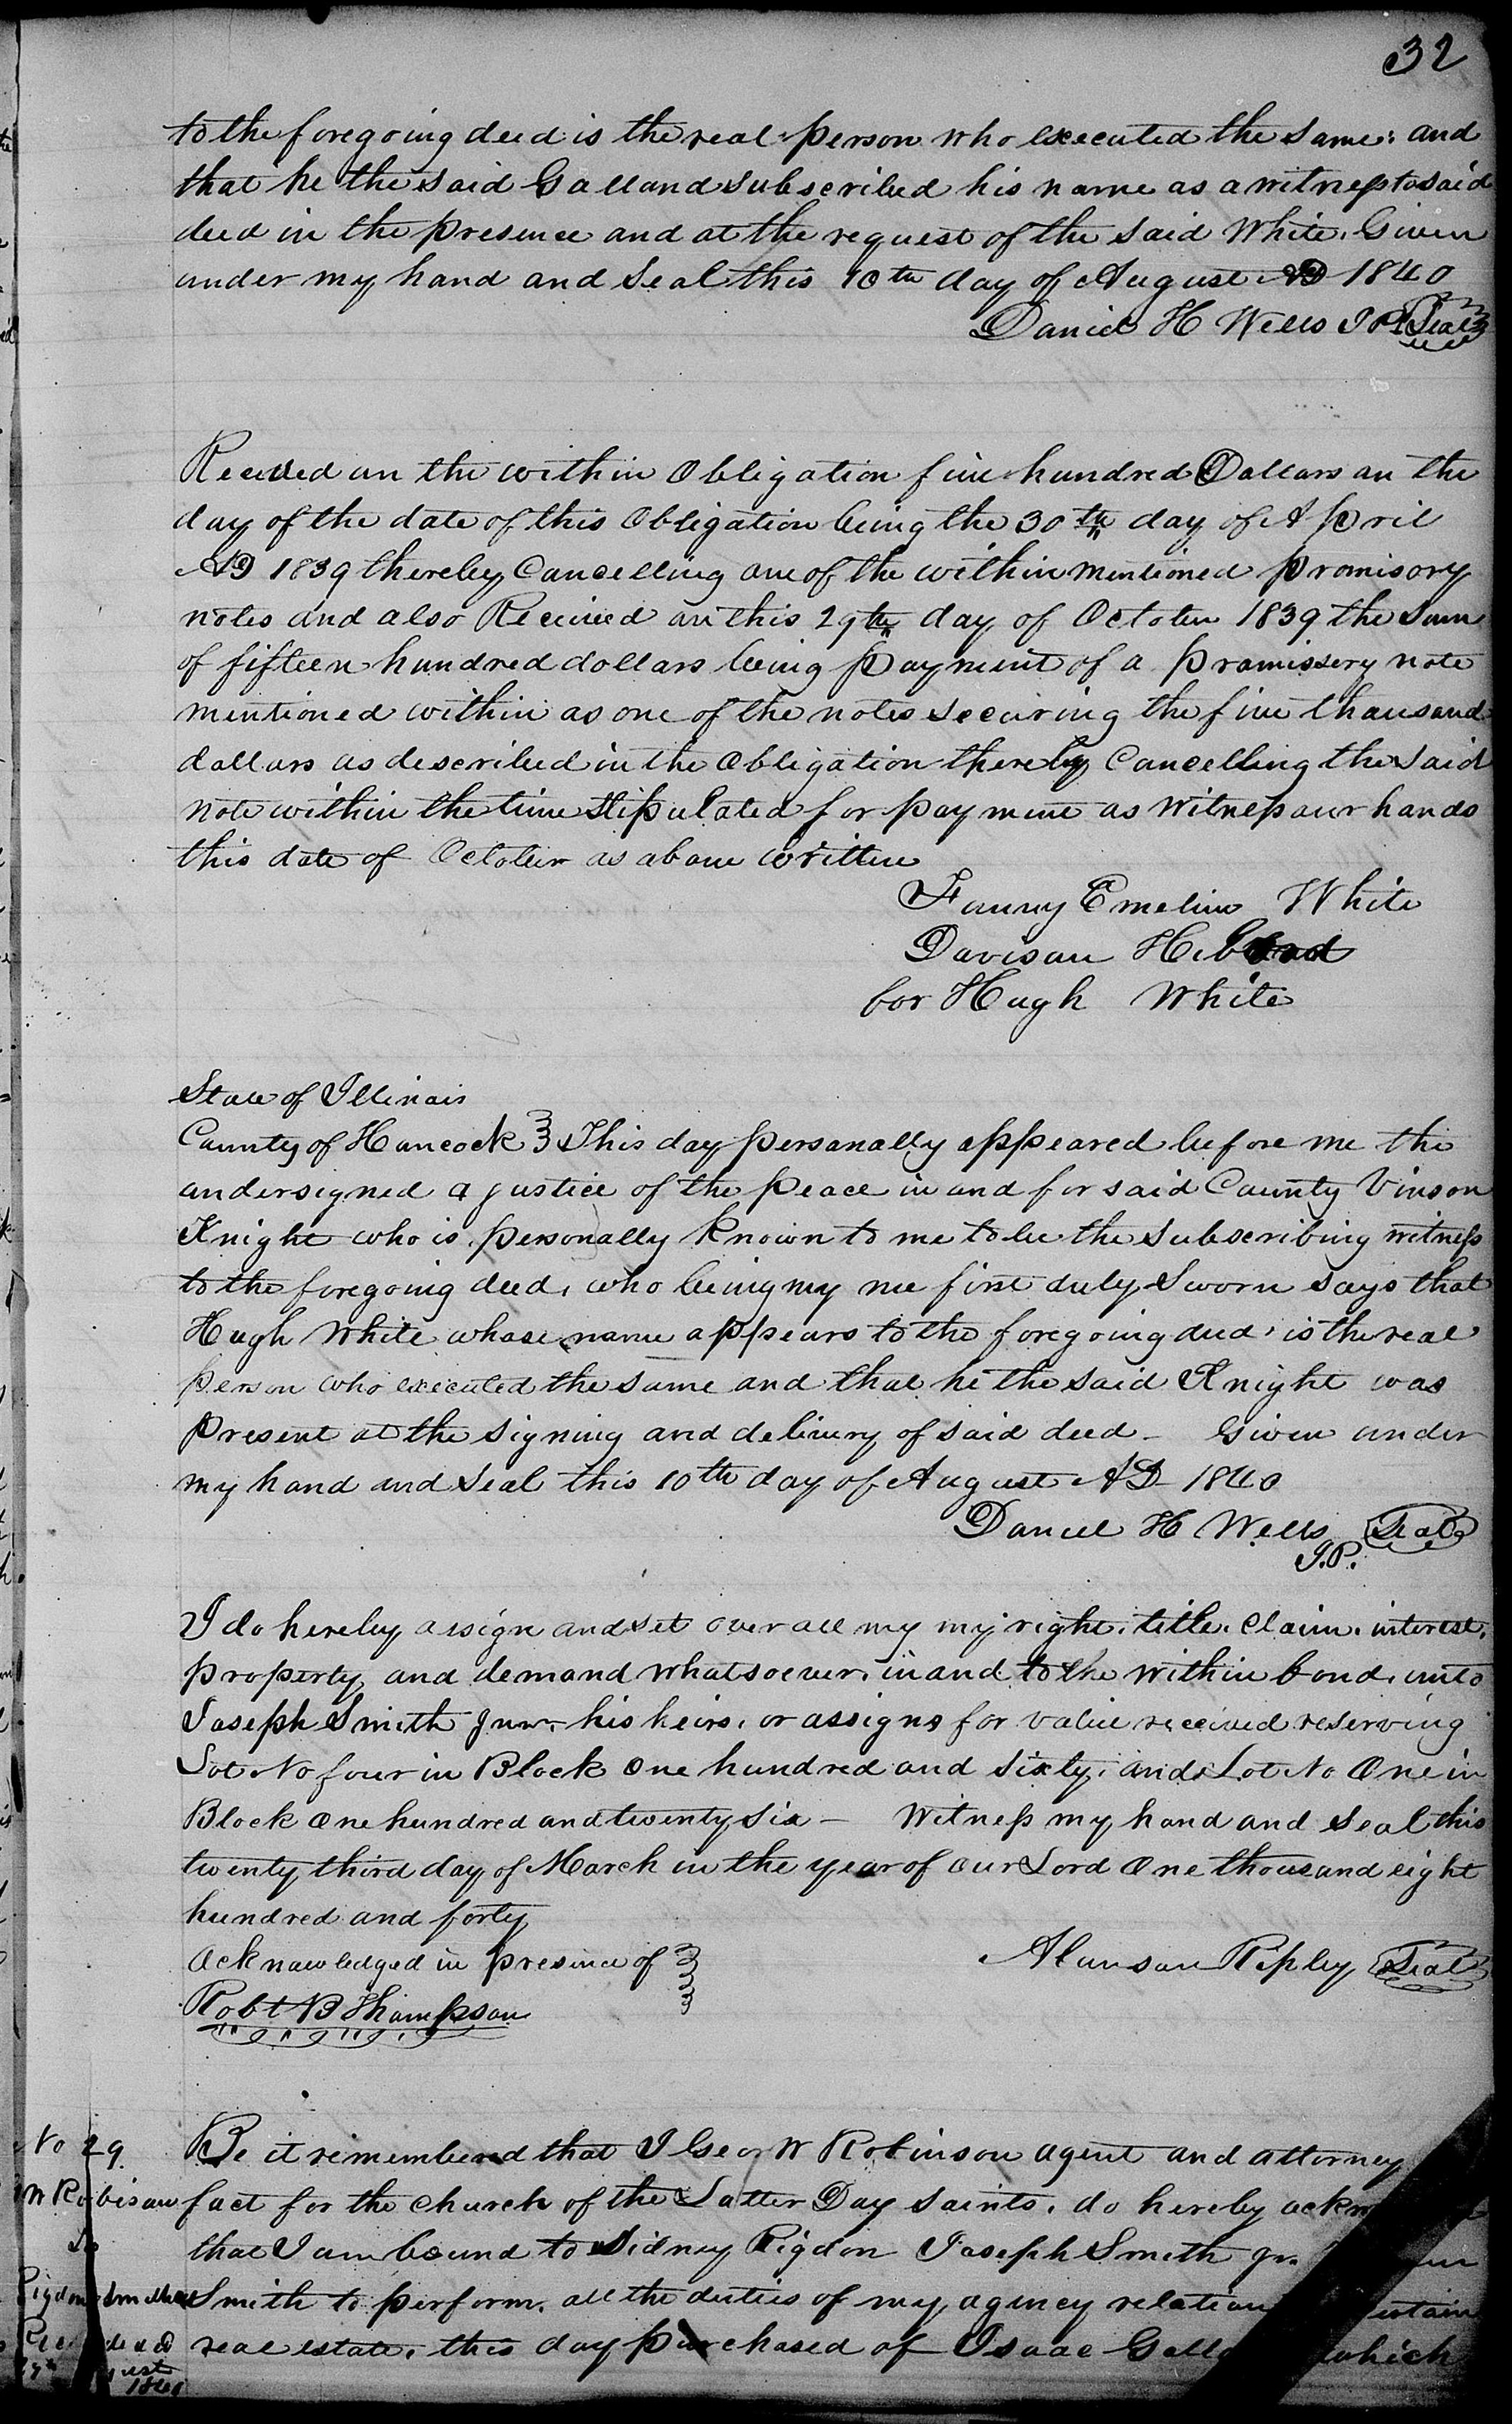 32
to the foregoing deed is the real person who executed the same: and
that he the said Galland subscribed his name as a witness to said
deed in the presence and at the request of the said White. Given
under my hand and seal this 10th day of August AD 1840
Daniel H Wells J P Seal
Received on the within Obligation five hundred Dollars on the
day of the date of this Obligation being the 30th day of April
AD 1839 thereby Cancelling one of the within mentioned promisory
notes and also Received on this 29th day of October 1839 the sum
of fifteen hundred dollars being payment of a promissery note
mentioned within as one of the notes securing the five thousand
dollars as described in the Obligation thereby Cancelling the said
note within the time stipulated for payment as witness our hands
this date of October as above written
Fanny Emeline White
Davison Hibard
for Hugh White
State of Illinois
County of Hancock } This day personally appeared before me the
undersigned a justice of the peace in and for said County Vinson
Knight who is personally known to me to be the subscribing witness
to the foregoing deed, who being my me first duly sworn says that
Hugh White whose name appears to the foregoing deed, is the real
person who executed the same and that he the said Knight was
present at the signing and delivery of said deed - Given under
my hand and seal this 10th day of August AD 1840
Daniel H Wells Seal
J.P.
I do hereby assign and set over all my my right, title, claim, interest,
property and demand whatsoever, in and to the within bond, unto
Joseph Smith Junr. his heirs, or assigns for value received reserving
Lot No four in Block one hundred and sixty, and Lot No One in
Block one hundred and twenty six - Witness my hand and seal this
twenty third day of March in the year of our Lord One thousand eight
hundred and forty
Acknowledged in presence of } Alanson Ripley Seal
Robt B Thompson
No 29. Be it remembered that I Geo W Robinson agent and attorney
W Robison fact for the church of the Latter Day Saints, do hereby ackn
To that I am bound to Sidney Rigdon Joseph Smith Jr.
Rigdon Smiths Smith to perform, all the duties of my agency relation
real estate, this day purchased of Isaac Gall which
1840